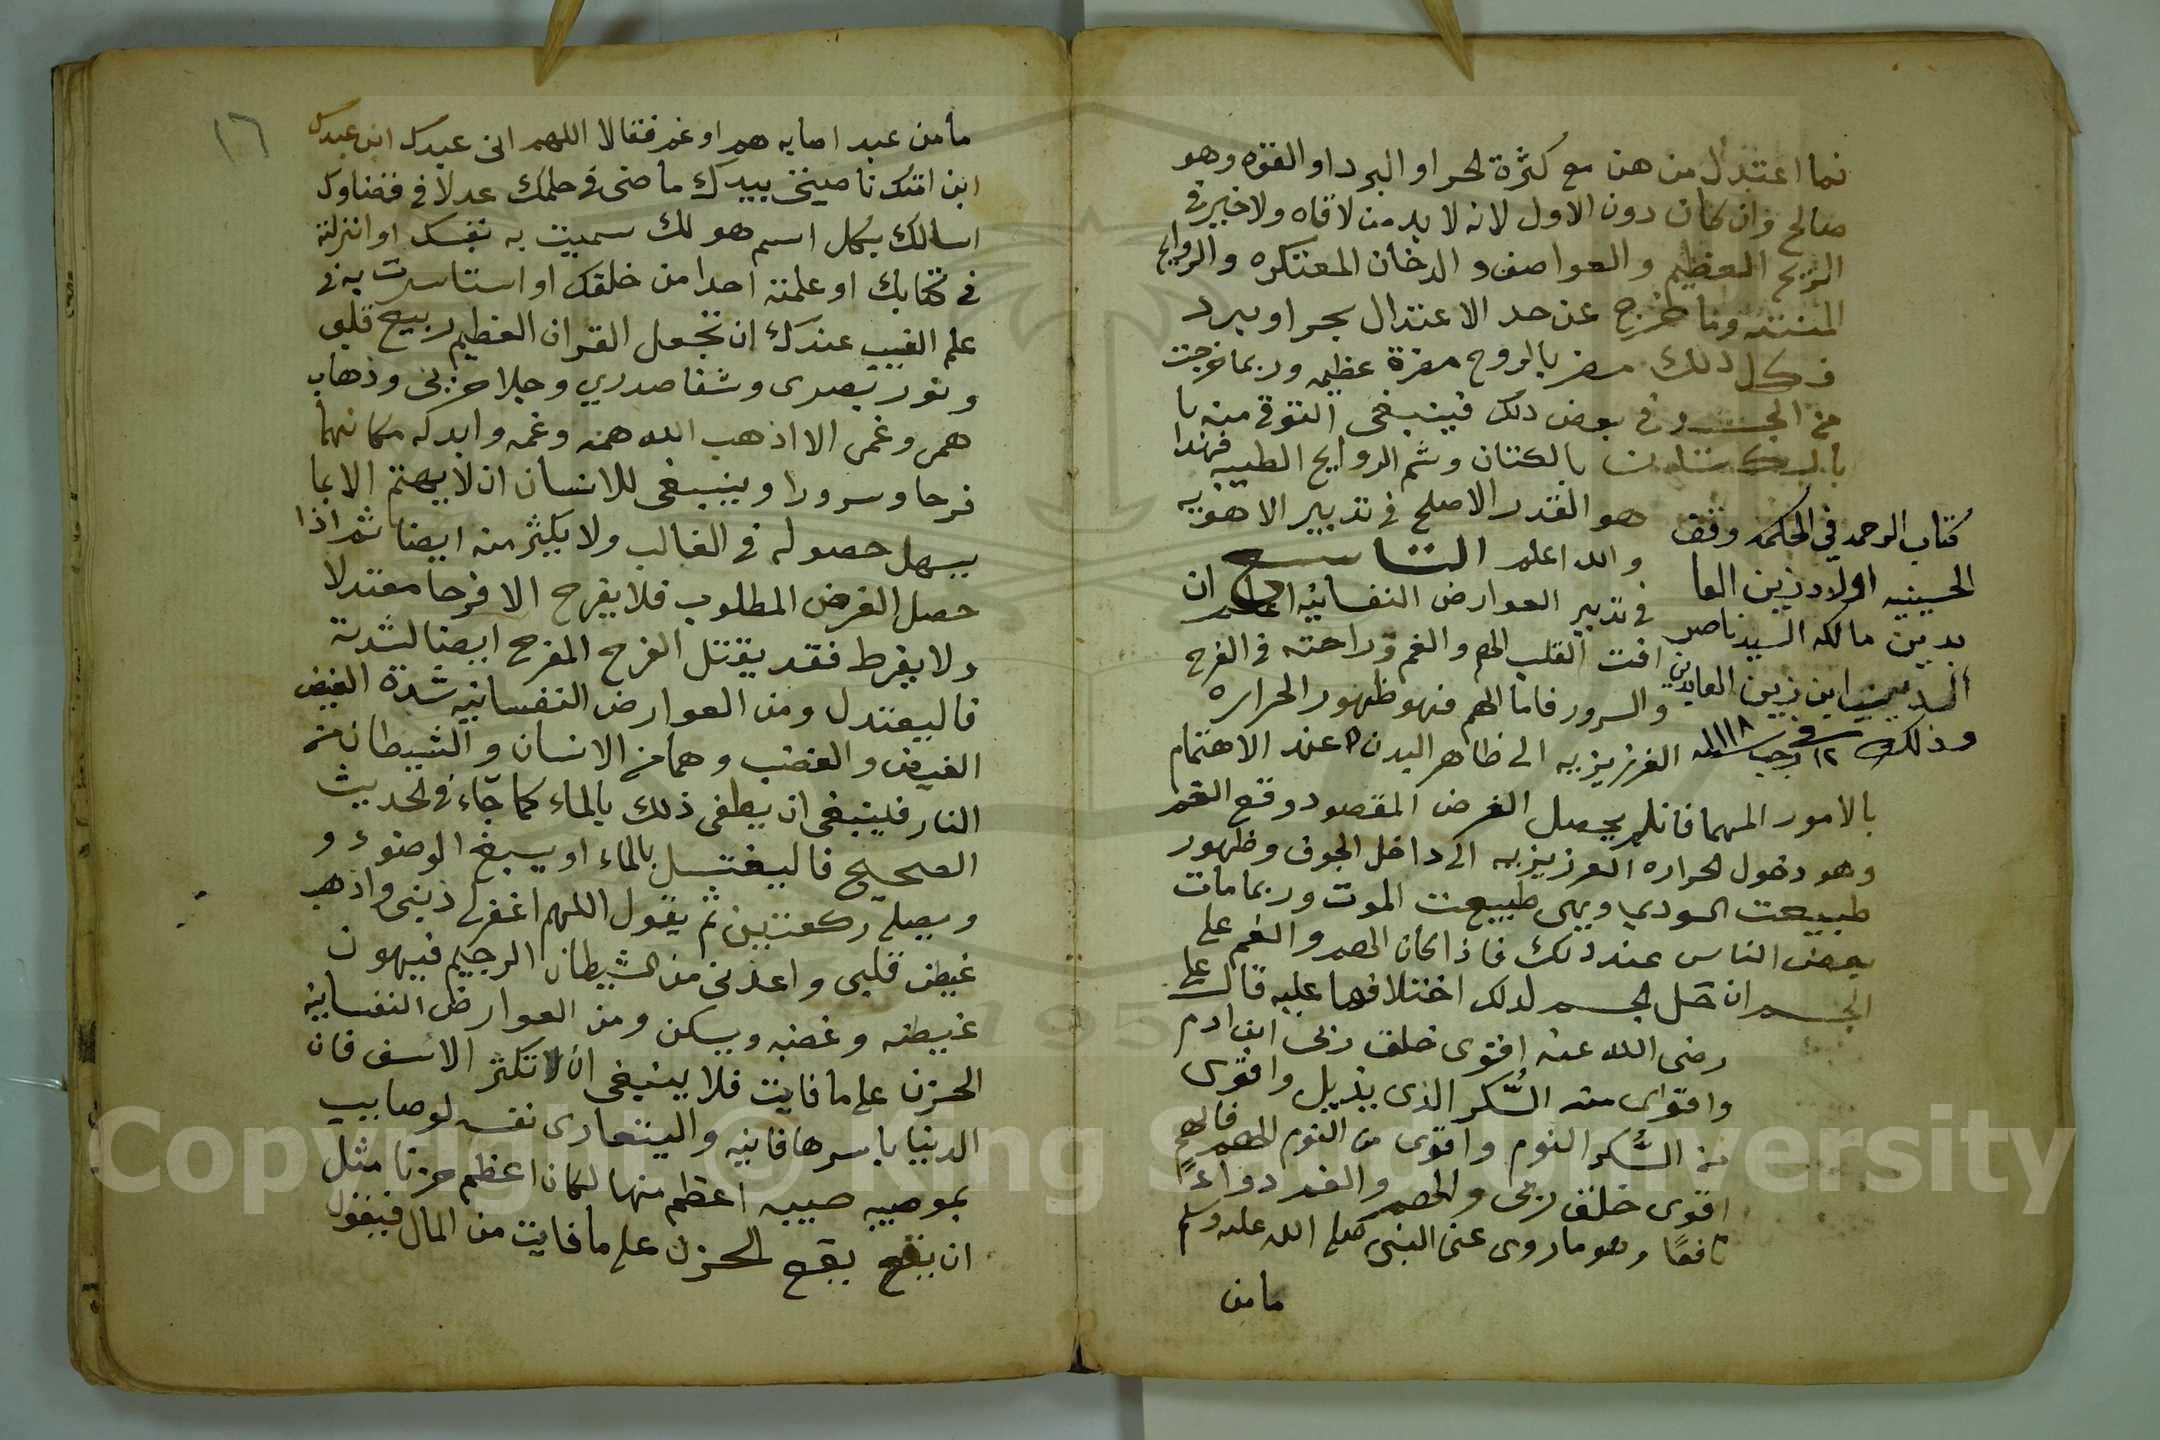 فما اعتدل من هن مع كثرة الحر او البرد او القوه وهو
صالح وان كان دون الاول لانه لا بد من لاقاه ولا خير في
الريح العظيم والعواصف والدخان المعتكره والروايح
المنتنه وما خرج عن حد الاعتدال بحر او برد
فكل ذلك مضر بالروح مضرة عظيمه وربما خرجت
من الجسد في بعض ذلك فينبغي التوقي منه با
بالكتان وشم الروايح الطيبه فهذا
هو القدر الاصلح في تدبير الاهويه
والله اعلم التاسع
في تدبير العوارض النفسانيه اعلم ان
افت القلب الهم والغم وراحته في الفرح
والسرور فاما الهم فهو ظهور الحراره
الغريزيه الى ظاهر البدن عند الاهتمام
بالامور المهما فان لم يحصل الغرض المقصود وقع الغم
وهو دخول الحراره الغريزيه الى داخل الجوف وظهور
طبيعت السودي وهي طبيعت الموت وربما مات
بعض الناس عند ذلك فاذا كان الهم والغم على
الجسم ان حل لجسم لدلك اختلافهما عليه قال علي
رضى الله عنه اقوى خلق ربى ابن ادم
واقواى منه السُّكر الذى يذيل واقوى
من السُّكر النوم واقوى من النوم الهم فالهم
اقوى خلق ربى والهم والغم دواءً
نافعًا وهو ما روى عن النبي صلى الله عليه وسلم
ما من
كتاب الرحمه في الحكمه وقف
الحسينيه اولاد زين العا
بدين مالكه السيد ناصر
الدين ابن زين العابدين
وذلك في ١٢ رجب سنة ١١١٨
١٦
ما من عبد اصابه هم او غم فقالا اللهم انى عبدك ابن عبدك
ابن امتك ناصيتي بيدك ماضى في حلمك عدلا في قضاوك
اسالك بكل اسم هو لك سميت به نفسك او انزلته
في كتابك او علمته احدا من خلقك او استاسرت به في
علم الغيب عندك ان تجعل القران العظيم ربيع قلبي
ونور بصرى وشفا صدري وجلا حزنى وذهاب
همى وغمى الا اذهب الله همه وغمه وابدله مكانهما
فرحا وسرورا وينبغى للانسان ان لا يهتم الا بما
يسهل حصوله في الغالب ولا يكثر منه ايضا ثم اذا
حصل الغرض المطلوب فلا يفرح الا فرحا معتدلا
ولا يفرط فقد يقتل الفرح المفرح ايضا لشدته
فاليعتدل ومن العوارض النفسانيه شدة الغيض
الغيض والغضب وهما من الانسان والشيطان من
النار فلينبغى ان يطفى ذلك بالماء كما جاء في الحديث
الصحيح فاليغتسل بالماء او يسبغ الوضوء و
ويصلي ركعتين ثم يقول اللهم اغفر لي ذنبى واذهب
غيض قلبي واعذنى من الشيطان الرجيم فيهون
غيضه وغضبه ويسكن ومن العوارض النفسانيه
الحزن على ما فايت فلا ينبغى ان لا تكثر الاسف فان
الدنيا باسرها فانيه واليتعادى نفسه لو صابيب
بموصيبه صيبه اعظم منها لكان اعظم حزنا مثل
ان يقع يقع الحزن على ما فايت من المال فيقول
Copyright © King Saud University
1957